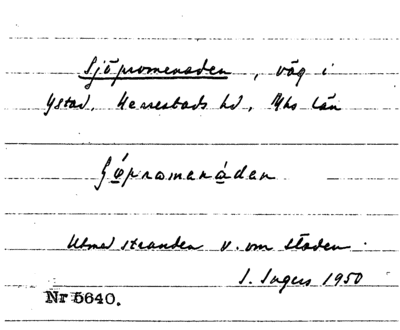 Sjöpromenaden, väg i
Ystad, Herrestads hd, Mhs län
Utmed stranden v. om staden.
I. Ingers 1950
Nr 5640.